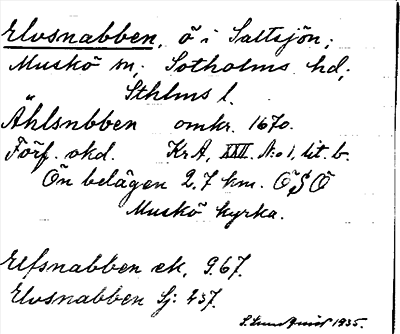 Elvsnabben, ö i Saltsjön;
Muskö sn; Sotholms hd;
Sthlms l.
Ählsnbben omkr. 1670.
Förf. okd. KrA, XXII. N:o 1, lit. b.
Ön belägen 2,7 km. OSO
Muskö kyrka.
Elfsnabben ek, 9.67.
Elvsnabben Sj: 237.
S. Lundquist 1935.